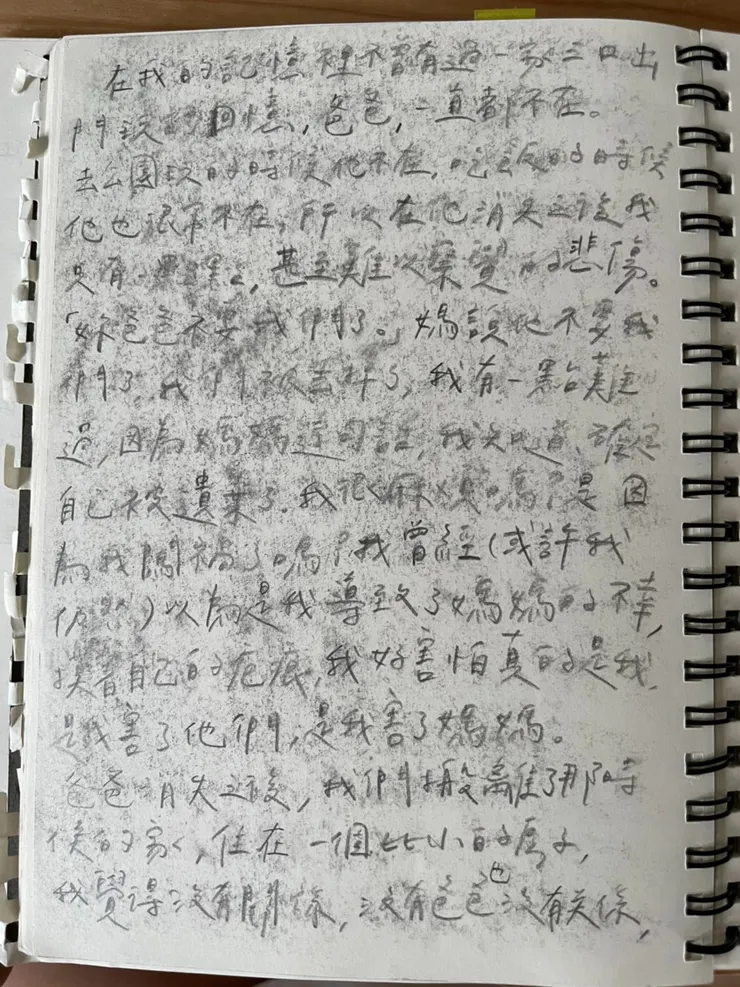 在我的記憶裡不曾有過一家三口出
門玩的回憶，爸爸，一直都不在。
去公園玩的時候他不在，吃飯的時候
他也很常不在，所以在他消失之後我
只有一點點，甚至難以察覺的悲傷。
「妳爸爸不要我們了。」媽說他不要我
們了，我們被丟掉了，我有一點難
過，因為媽媽這句話，我知道、確定
自己被遺棄了。我很麻煩嗎？是因
為我闖禍了嗎？我曾經（或許我
仍然）以為是我導致了媽媽的不幸，
摸着自己的疤痕，我好害怕真的是我，
是我害了他們，是我害了媽媽。
爸爸消失之後，我們搬離了那時
候的家，住在一個比小的房子，
我覺得沒有關係，沒有爸爸也沒有关係，